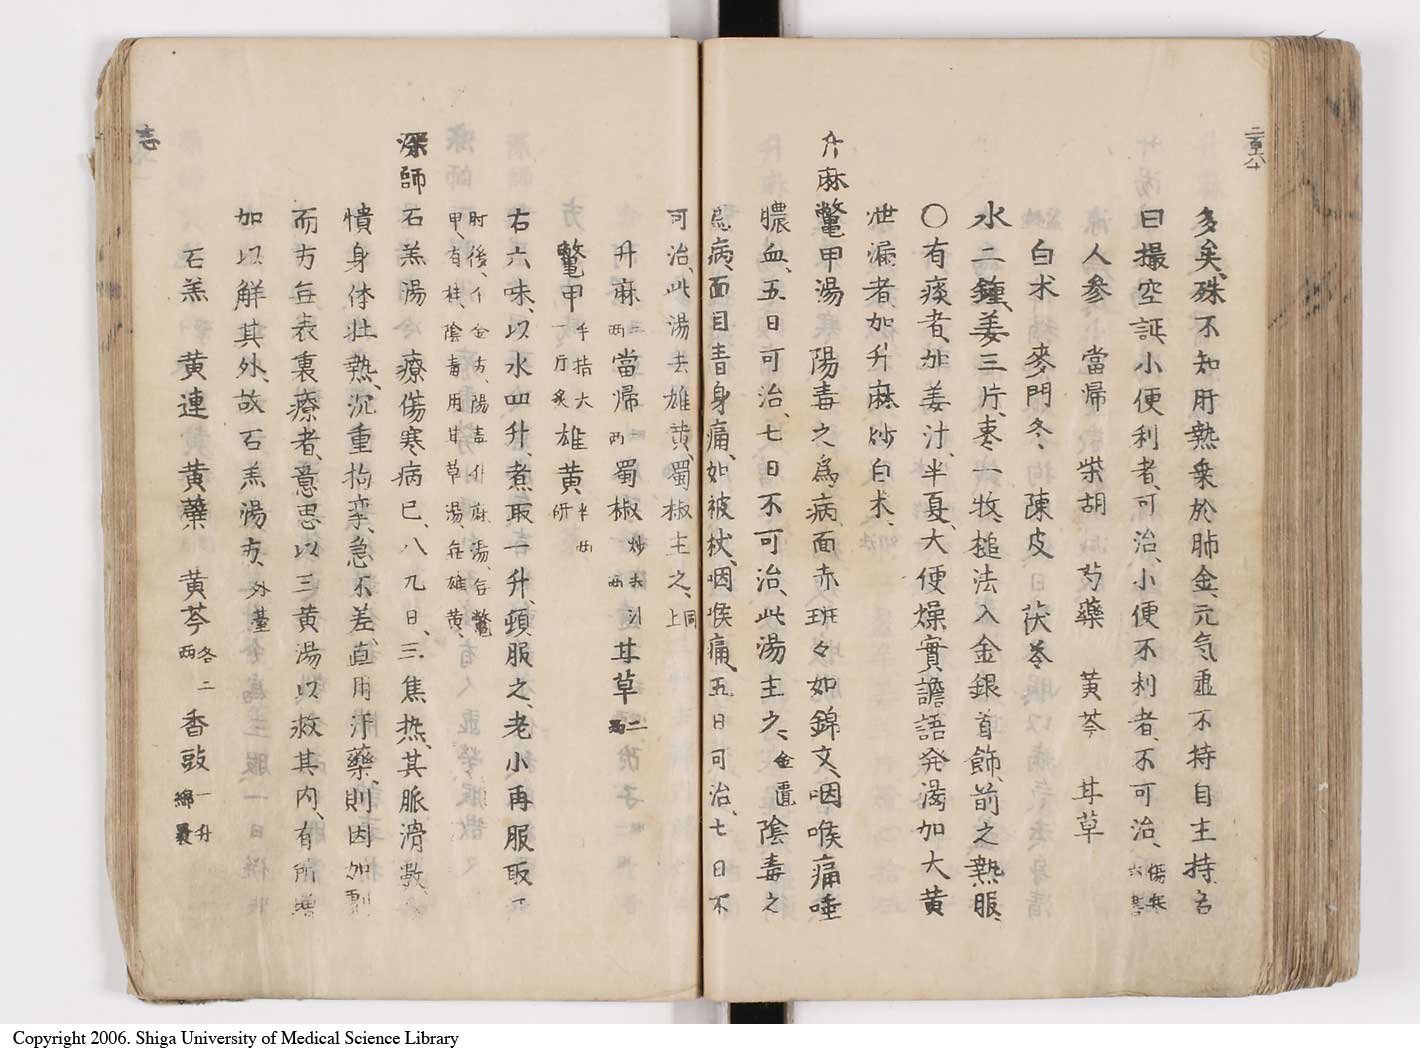 多矣、殊不知肝熱乗於肺金、元気虚不持自主持、名
曰撮空証、小便利者、可治、小便不利者、不可治、傷寒六書
人參 當帰 柴胡 芍藥 黄芩 甘草
白朮 麥門冬、 陳皮 茯苓
水二鍾、姜三片、棗一枚、槌法入金銀首飾、煎之熱服、
○有痰者、加姜汁、半夏、大便燥實譫語発渇加大黄
泄漏者、加升麻、炒白朮、
升麻鼈甲湯 陽毒之爲病、面赤斑々如錦文、咽喉痛唾
膿血、五日可治、七日不可治、此湯主之、金匱陰毒之
爲病、面目青身痛、如被杖、咽喉痛、五日可治、七日不
可治、此湯去雄黄、蜀椒主之、同上
升麻二両 當帰一両 蜀椒炒去汁一両 甘草二両
鼈甲手指大一片炙 雄黄半両研
右六味、以水四升、煮取一升、頓服之、老小再服取汗
肘後、千金方、陽毒升麻湯、無鼈
甲、有桂、陰毒用甘草湯無雄黄、
深師石羔湯 療傷寒病已、八九日、三焦熱、其脈滑數、
憒身体壮熱、沉重拘攣、急不差、直用汗藥、則因加劇
而方無表裏療者、意思以三黄湯以救其内、有所増
加以解其外、故石羔湯方、外臺
石羔 黄連 黄蘗 黄芩各二両 香豉一升綿裹